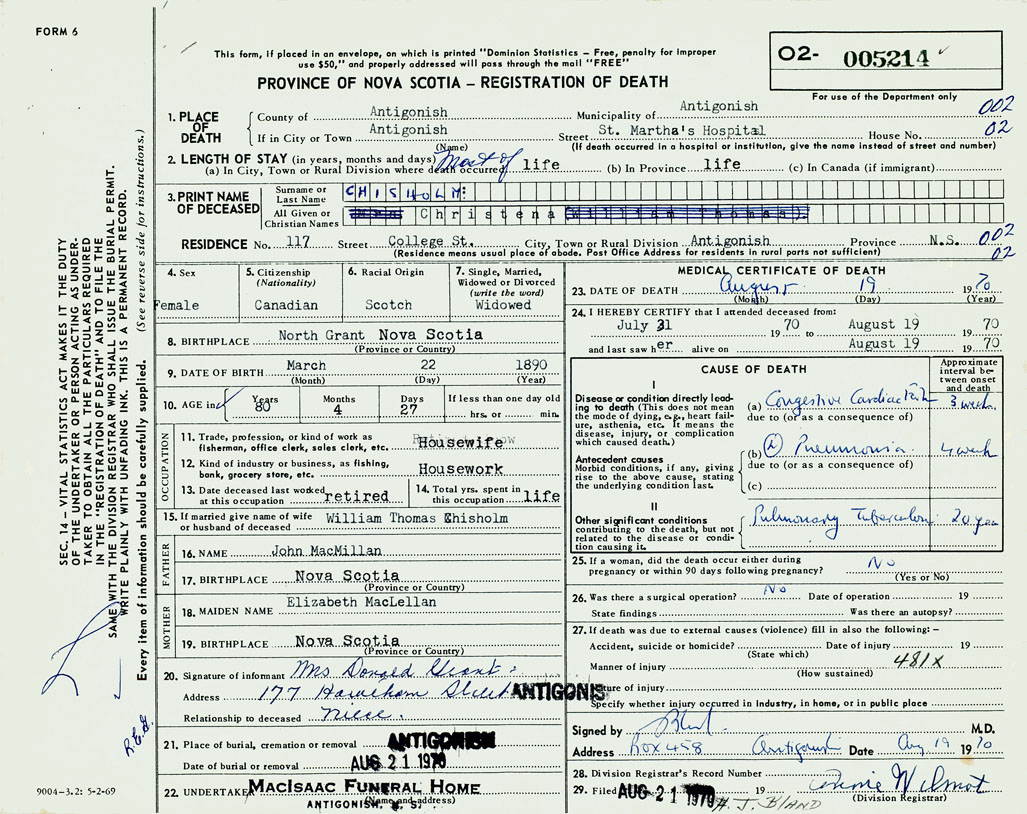 FORM 6
This form, if placed in an envelope, on which is printed "Dominion Statistics – Free, penalty for improper
use $50," and properly addressed will pass through the mail "FREE"
PROVINCE OF NOVA SCOTIA – REGISTRATION OF DEATH
02- 005214
For use of the Department only
1. PLACE OF DEATH
County of Antigonish Municipality of Antigonish 002
If in City or Town Antigonish Street St. Martha's Hospital House No. 02
(Name) (If death occurred in a hospital or institution, give the name instead of street and number)
2. LENGTH OF STAY (in years, months and days)
(a) In City, Town or Rural Division where death occurred Most of life (b) In Province life (c) In Canada (if immigrant)
3. PRINT NAME OF DECEASED
Surname or Last Name CHISHOLM:
All Given or Christian Names Mrs. Christena (William Thomas).
RESIDENCE No. 117 Street College St. City, Town or Rural Division Antigonish Province N.S. 002
(Residence means usual place of abode. Post Office Address for residents in rural parts not sufficient) 02
4. Sex
Female
5. Citizenship
(Nationality)
Canadian
6. Racial Origin
Scotch
7. Single, Married,
Widowed or Divorced
(write the word)
Widowed
8. BIRTHPLACE North Grant Nova Scotia
(Province or Country)
9. DATE OF BIRTH March 22 1890
(Month) (Day) (Year)
10. AGE in Years 80 Months 4 Days 27 If less than one day old
hrs. or min.
OCCUPATION
11. Trade, profession, or kind of work as
fisherman, office clerk, sales clerk, etc. Housewife
12. Kind of industry or business, as fishing,
bank, grocery store, etc. Housework
13. Date deceased last worked
at this occupation retired
14. Total yrs. spent in
this occupation life
15. If married give name of wife
or husband of deceased William Thomas Chisholm
FATHER
16. NAME John MacMillan
17. BIRTHPLACE Nova Scotia
(Province or Country)
MOTHER
18. MAIDEN NAME Elizabeth MacLellan
19. BIRTHPLACE Nova Scotia
(Province or Country)
20. Signature of informant Mrs Donald Grant
Address 177 Street ANTIGONIS
Relationship to deceased Niece.
21. Place of burial, cremation or removal ANTIGONISH
Date of burial or removal AUG 21 1970
22. UNDERTAKER MacIsaac Funeral Home
(Name and address)
ANTIGONISH, N. S.
MEDICAL CERTIFICATE OF DEATH
23. DATE OF DEATH August 19 1970
(Month) (Day) (Year)
24. I HEREBY CERTIFY that I attended deceased from:
July 31 1970 to August 19 1970
and last saw her alive on August 19 1970
CAUSE OF DEATH
Approximate
interval be-
tween onset
and death
I
Disease or condition directly lead-
ing to death (This does not mean
the mode of dying, e.g., heart fail-
ure, asthenia, etc. It means the
disease, injury, or complication
which caused death.)
(a) Congestive Cardiac 3 week
due to (or as a consequence of)
Antecedent causes
Morbid conditions, if any, giving
rise to the above cause, stating
the underlying condition last.
(b) Pneumonia 4 week
due to (or as a consequence of)
(c)
II
Other significant conditions
contributing to the death, but not
related to the disease or condi-
tion causing it.
Pulmonary Tuberculosis 20 year
25. If a woman, did the death occur either during
pregnancy or within 90 days following pregnancy? No
(Yes or No)
26. Was there a surgical operation? No Date of operation 19
State findings Was there an autopsy?
27. If death was due to external causes (violence) fill in also the following: –
Accident, suicide or homicide? Date of injury 19
(State which)
Manner of injury 481X
(How sustained)
Nature of injury
Specify whether injury occurred in industry, in home, or in public place
Signed by M.D.
Address Box 458 Antigonish Date Aug 19 1970
28. Division Registrar's Record Number
29. Filed AUG 21 1970 19 Wilmot
(Division Registrar)
H. J. BLAND
SEC. 14 – VITAL STATISTICS ACT MAKES IT THE DUTY
OF THE UNDERTAKER OR PERSON ACTING AS UNDER-
TAKER TO OBTAIN ALL THE PARTICULARS REQUIRED
IN THE "REGISTRATION OF DEATH" AND TO FILE THE
SAME WITH THE DIVISION REGISTRAR WHO SHALL ISSUE THE BURIAL PERMIT.
WRITE PLAINLY WITH UNFADING INK. THIS IS A PERMANENT RECORD.
Every item of information should be carefully supplied. (See reverse side for instructions.)
9004–3.2: 5-2-69